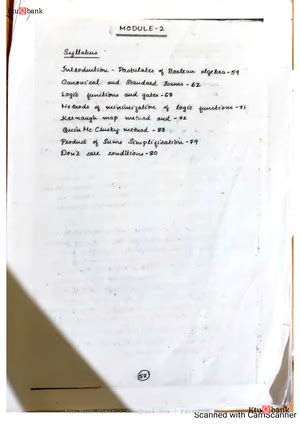 KtuQbank
MODULE-2
Syllabus
Introduction - Postulates of Boolean algebra-59
Canonical and Standard Forms - 62
Logic functions and gates - 67
Methods of minimization of logic functions - 71
Karnaugh map method and - 72
Quin Mc Clusky method - 83
Product of Sums Simplification - 79
Don't care conditions - 80
57
KtuQbank
Scanned with CamScanner